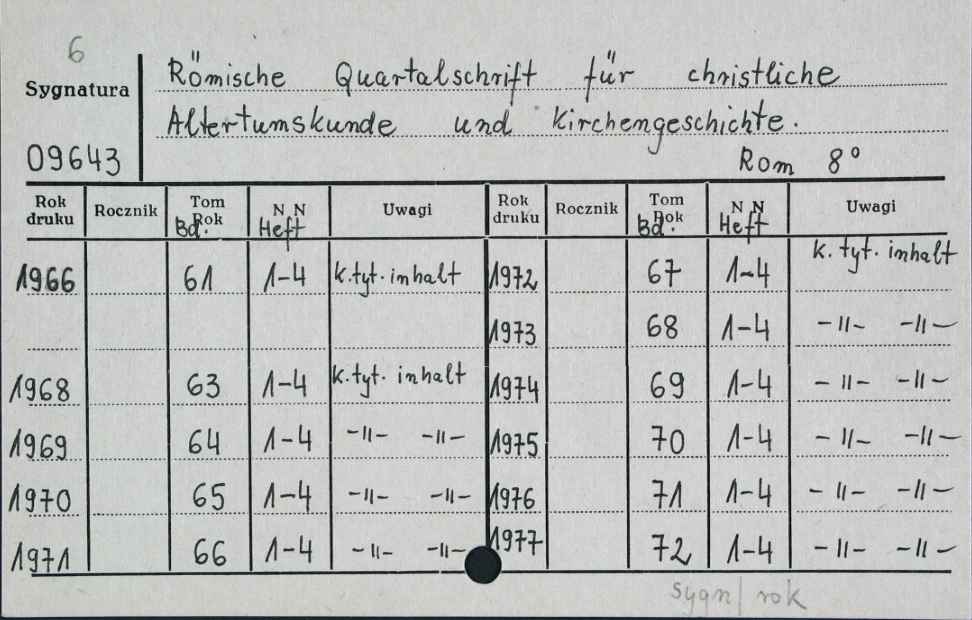 6
Sygnatura
Römische Quartalschrift für christliche
Altertumskunde und Kirchengeschichte.
09643
Rom 8°
Rok druku Rocznik Tom Rok Bd. NN Heft Uwagi Rok druku Rocznik Tom Rok Bd. NN Heft Uwagi
1966 61 1-4 k. tyt. inhalt 1972 67 1-4 k. tyt. inhalt
1973 68 1-4 -II- -II-
1968 63 1-4 k. tyt. inhalt 1974 69 1-4 -II- -II-
1969 64 1-4 -II- -II- 1975 70 1-4 -II- -II-
1970 65 1-4 -II- -II- 1976 71 1-4 -II- -II-
1971 66 1-4 -II- -II- 1977 72 1-4 -II- -II-
sygn/ rok